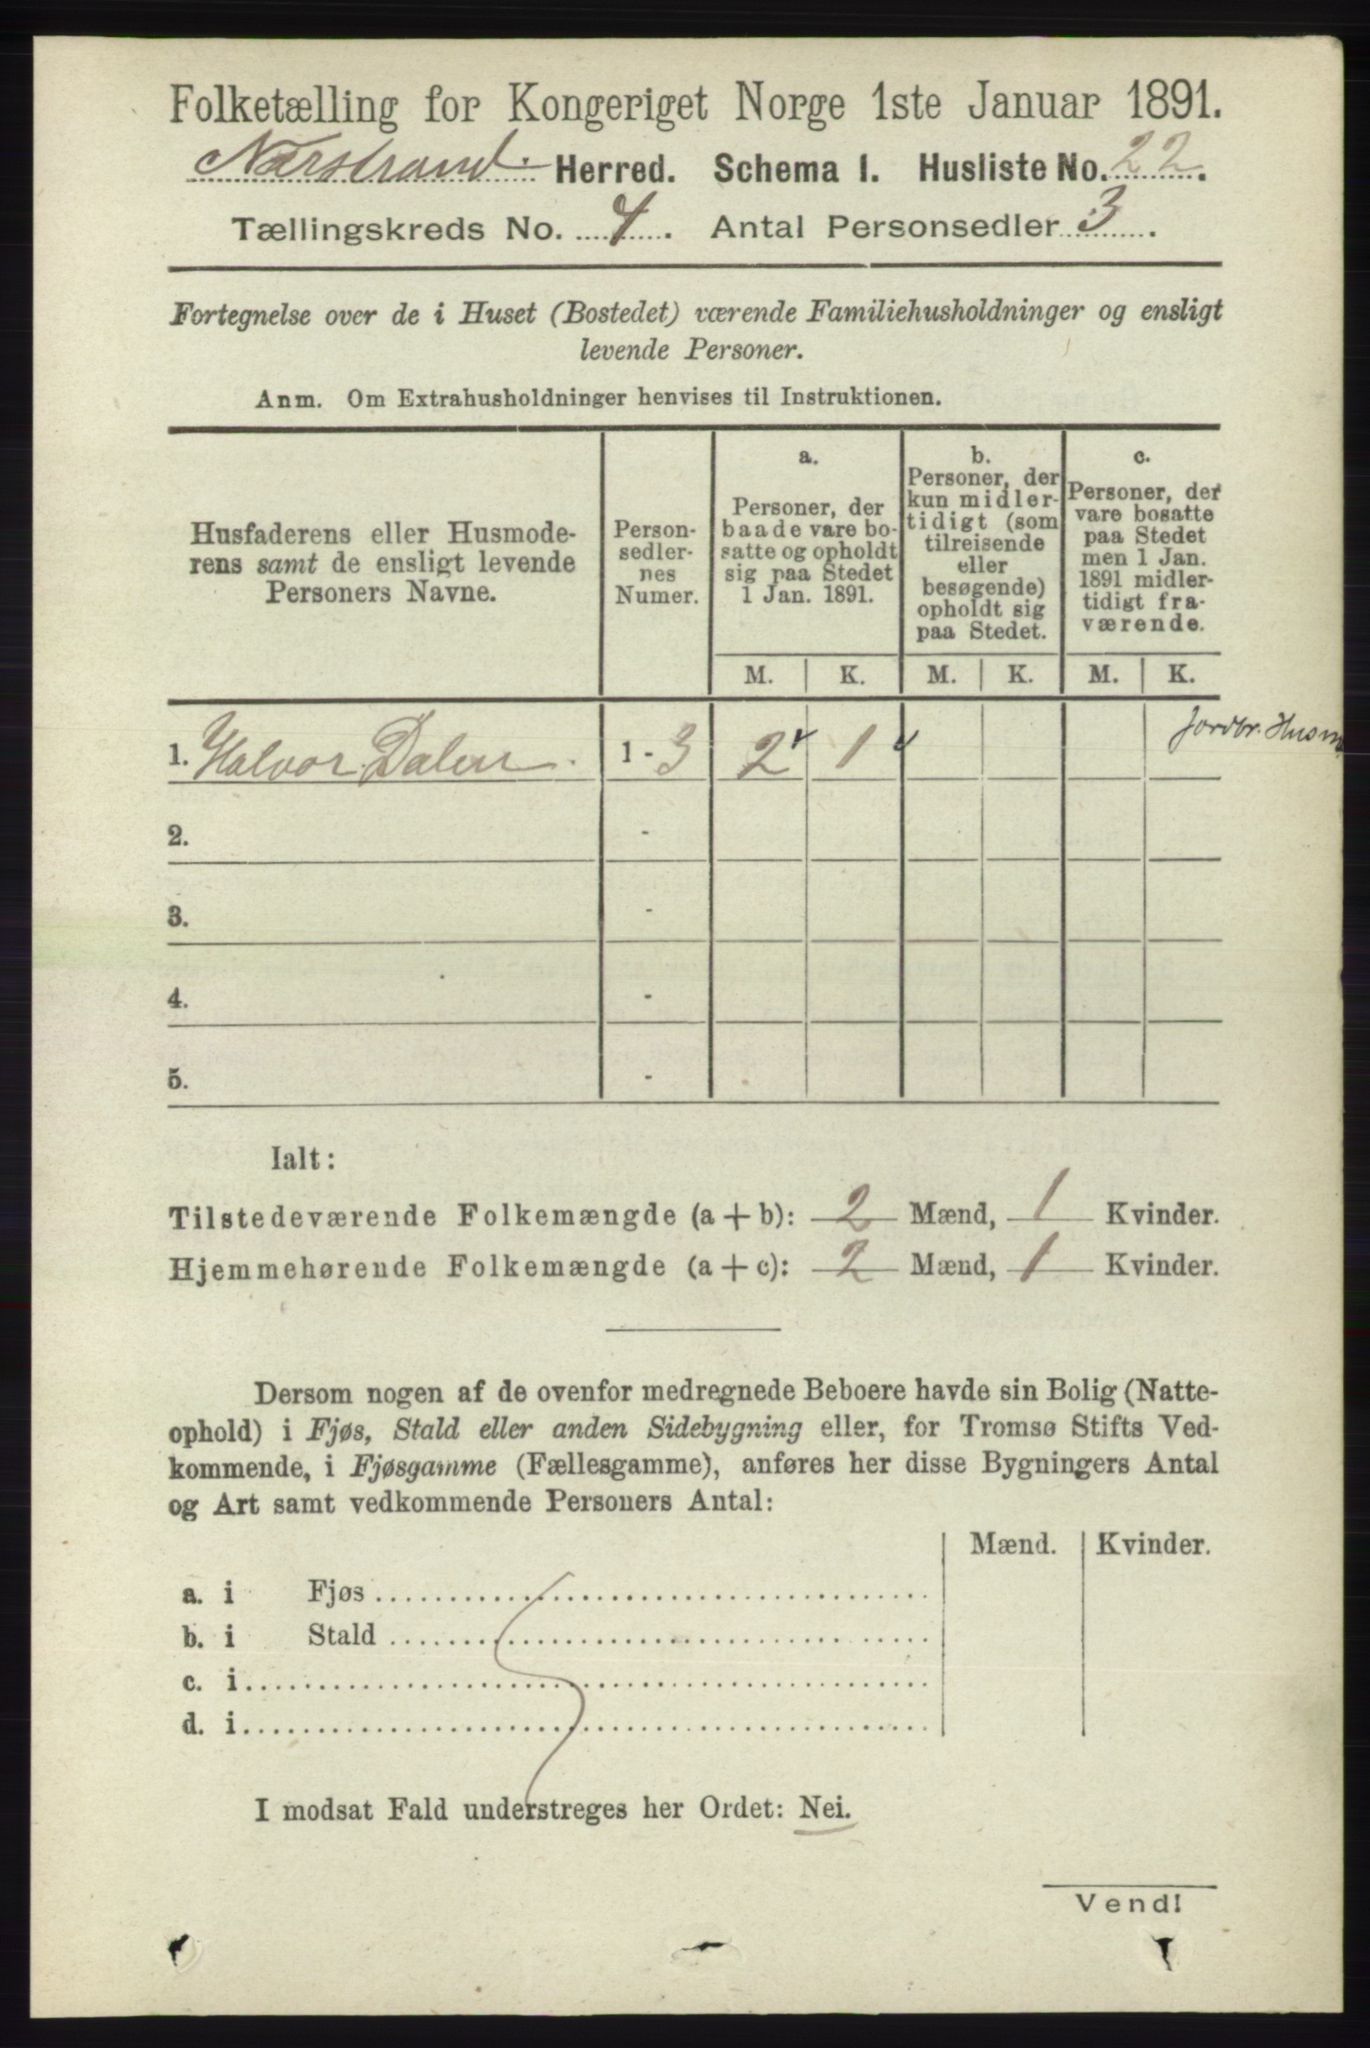 Folketælling for Kongeriget Norge 1ste Januar 1891.
Nærstrand Herred. Schema 1. Husliste No. 22.
Tællingskreds No. 4. Antal Personsedler 3.
Fortegnelse over de i Huset (Bostedet) værende Familiehusholdninger og ensligt
levende Personer.
Anm. Om Extrahusholdninger henvises til Instruktionen.
Husfaderens eller Husmode-
rens samt de ensligt levende
Personers Navne.
Person-
sedler-
nes
Numer.
a.
Personer, der
baade vare bo-
satte og opholdt
sig paa Stedet
1 Jan. 1891.
b.
Personer, der
kun midler-
tidigt (som
tilreisende
eller
besøgende)
opholdt sig
paa Stedet.
c.
Personer, der
vare bosatte
paa Stedet
men 1 Jan.
1891 midler-
tidigt fra-
værende.
M. K. M. K. M. K.
1. Halvor Dalen. 1 - 3 2 1 Jordbr. Husm
2. -
3. -
4. -
5. -
Ialt:
Tilstedeværende Folkemængde (a + b): 2 Mænd, 1 Kvinder.
Hjemmehørende Folkemængde (a + c): 2 Mænd, 1 Kvinder.
Dersom nogen af de ovenfor medregnede Beboere havde sin Bolig (Natte-
ophold) i Fjøs, Stald eller anden Sidebygning eller, for Tromsø Stifts Ved-
kommende, i Fjøsgamme (Fællesgamme), anføres her disse Bygningers Antal
og Art samt vedkommende Personers Antal:
Mænd. Kvinder.
a. i Fjøs
b. i Stald
c. i
d. i
I modsat Fald understreges her Ordet: Nei.
Vend!